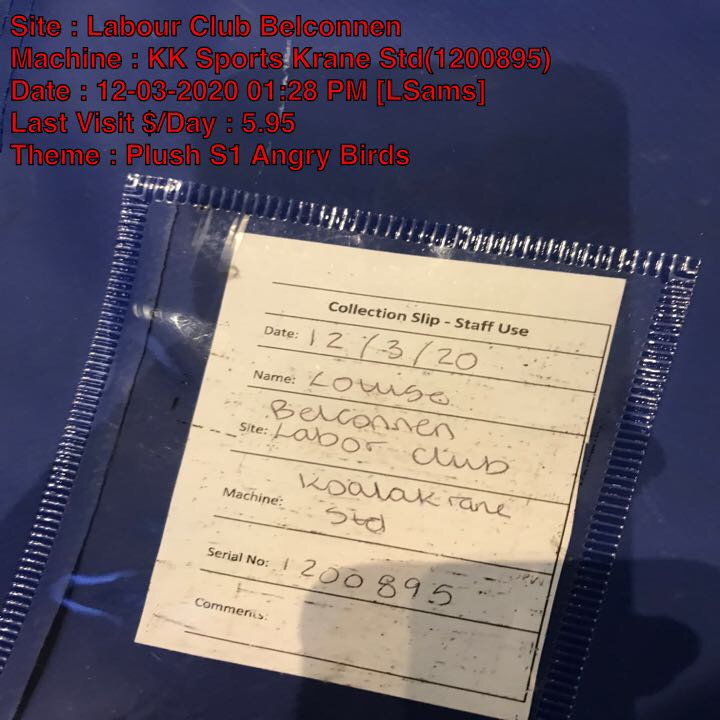 Site : Labour Club Belconnen
Machine : KK Sports Krane Std(1200895)
Date : 12-03-2020 01:28 PM [LSams]
Last Visit $/Day : 5.95
Theme : Plush S1 Angry Birds
Collection Slip - Staff Use
Date: 12/3/20
Name: Louise
Belconnen
Site: Labor Club
Machine: Koalakrane
Std
Serial No: 1200895
Comments: